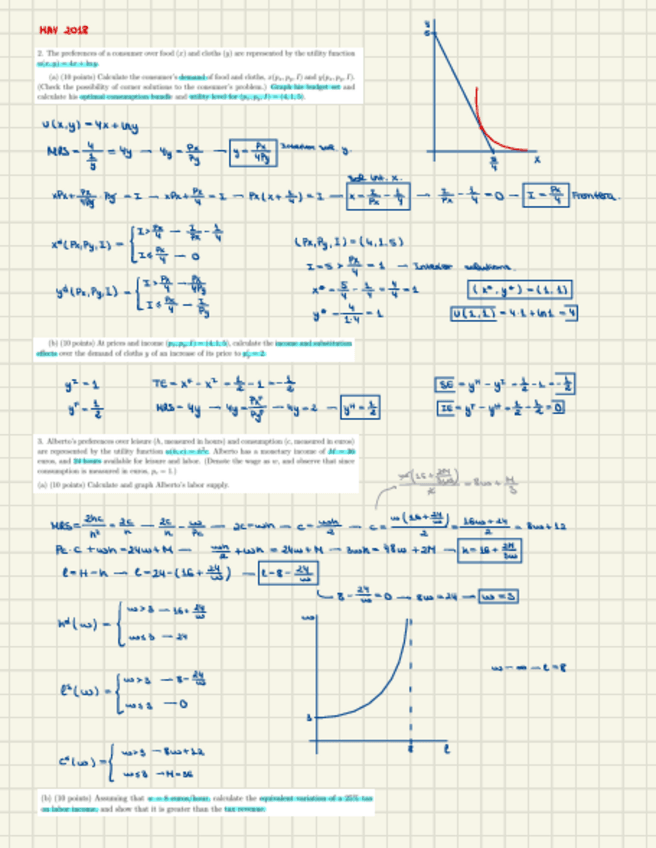 MAY 2018
2. The preferences of a consumer over food (x) and cloths (y) are represented by the utility function
u(x, y) = 4x + ln y.
(a) (10 points) Calculate the consumer's demand of food and cloths, x(pₓ, p_y, I) and y(pₓ, p_y, I).
(Check the possibility of corner solutions to the consumer's problem.) Graph his budget set and
calculate his optimal consumption bundle and utility level for (pₓ, p_y, I) = (4, 1, 5).
u(x,y) = 4x + lny
MRS = 4/(1/y) = 4y — 4y = Px/Py — y = Px/4Py Interior sol. y.
xPx + Px/4Py · Py = I — xPx + Px/4 = I — Px(x + 1/4) = I — sol. int. x. x = I/Px - 1/4 — I/Px - 1/4 = 0 — I = Px/4 Frontera.
x*(Px,Py,I) = { I > Px/4 — I/Px - 1/4
I ≤ Px/4 — 0
y*(Px,Py,I) = { I > Px/4 — Px/4Py
I ≤ Px/4 — I/Py
(Px,Py,I) = (4,1,5)
I = 5 > Px/4 = 1 — Interior solutions.
x* = 5/4 - 1/4 = 4/4 = 1 (x*, y*) = (1,1)
y* = 4/4·1 = 1 U(1,1) = 4·1 + ln1 = 4
(b) (10 points) At prices and income (pₓ, p_y, I) = (4, 1, 5), calculate the income and substitution
effects over the demand of cloths y of an increase of its price to p'_y = 2.
TE = = 1/2 - 1 = -1/2
MRS = 4y — 4y = — 4y = 2 — = 1/2
SE = = 1/2 - 1 = -1/2
IE = = 1/2 - 1/2 = 0
3. Alberto's preferences over leisure (h, measured in hours) and consumption (c, measured in euros)
are represented by the utility function Alberto has a monetary income of
euros, and 24 hours available for leisure and labor. (Denote the wage as w, and observe that since
consumption is measured in euros, p_c = 1.)
(a) (10 points) Calculate and graph Alberto's labor supply.
= 8w + M/3
MRS = 2hc/h² = 2c/h — 2c/h = w/Pc — 2c = wh — c = wh/2 — c = w(16 + 24/w)/2 = (16w + 24)/2 = 8w + 12
Pc·C + wh = 24w + M — wh/2 + wh = 24w + M — 3wh = 48w + 2M — h = 16 + 2M/3w
l = H - h — l = 24 - (16 + 24/w) — l = 8 - 24/w
8 - 24/w = 0 — 8w = 24 — w = 3
h*(w) = { w > 3 — 16 + 24/w
w ≤ 3 — 24
l*(w) = { w > 3 — 8 - 24/w
w ≤ 3 — 0
w — ∞ — l = 8
c*(w) = { w > 3 — 8w + 12
w ≤ 3 — M = 36
(b) (10 points) Assuming that w = 8 euros/hour, calculate the equivalent variation of a 25% tax
on labor income, and show that it is greater than the tax revenue.